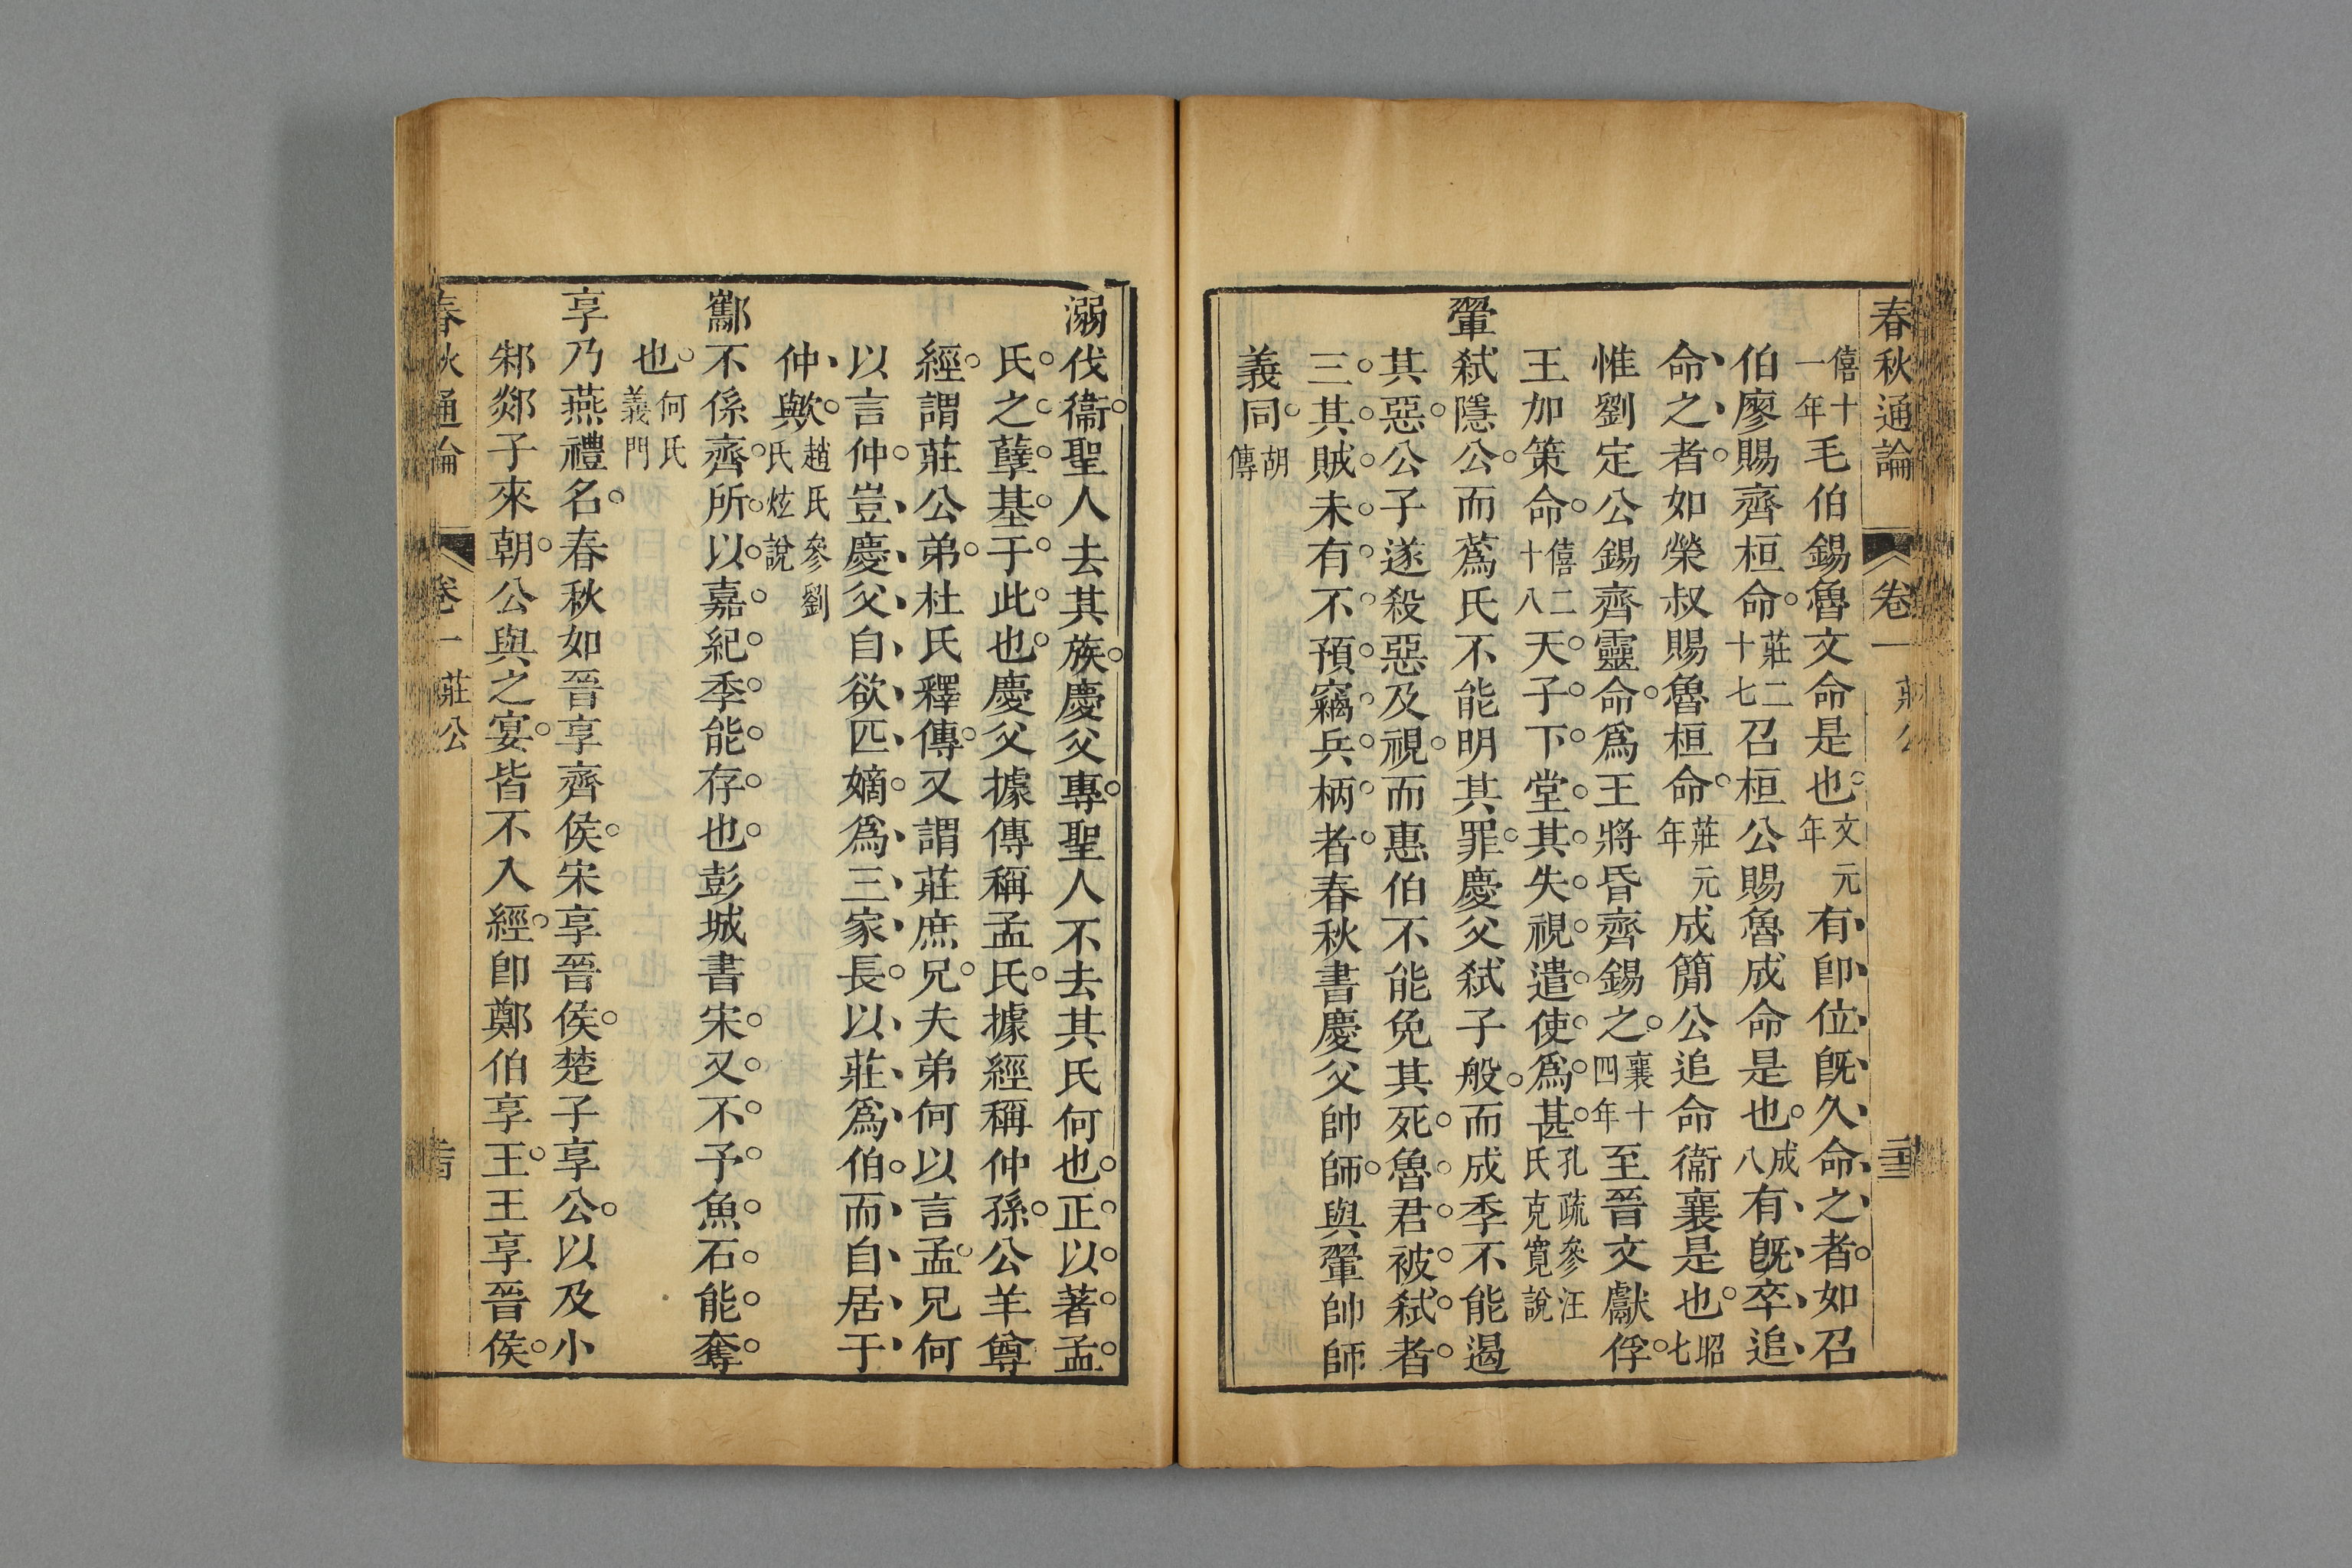 春秋通論 卷一 莊公
僖十一年毛伯錫魯文命是也文元年有卽位旣久命之者如召
伯廖賜齊桓命莊二十七召桓公賜魯成命是也成八有旣卒追
命之者如榮叔賜魯桓命莊元年成簡公追命衞襄是也昭七
惟劉定公錫齊靈命爲王將昏齊錫之襄十四年至晉文獻俘
王加策命僖二十八天子下堂其失視遣使爲甚孔疏參汪氏克寬說
翬弑隱公而蔿氏不能明其罪慶父弑子般而成季不能遏
其惡公子遂殺惡及視而惠伯不能免其死魯君被弑者
三其賊未有不預竊兵柄者春秋書慶父帥師與翬帥師
義同胡傳
溺伐衞聖人去其族慶父專聖人不去其氏何也正以著孟
氏之孽基于此也慶父據傳稱孟氏據經稱仲孫公羊尊
經謂莊公弟杜氏釋傳又謂莊庶兄夫弟何以言孟兄何
以言仲豈慶父自欲匹嫡爲三家長以莊爲伯而自居于
仲與歟趙氏參劉氏炫說
酅不係齊所以嘉紀季能存也彭城書宋又不予魚石能奪
也何氏義門
享乃燕禮名春秋如晉享齊侯宋享晉侯楚子享公以及小
邾郯子來朝公與之宴皆不入經卽鄭伯享王王享晉侯
春秋通論 卷一 莊公